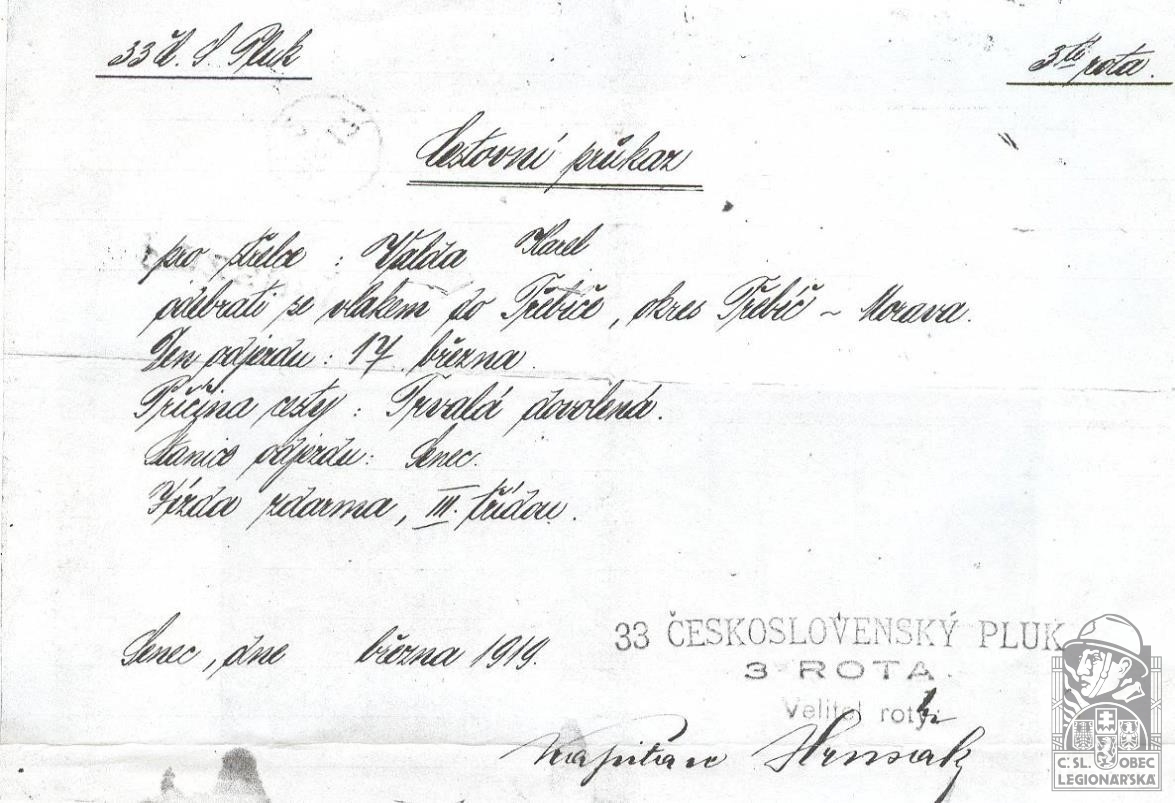 33 Č. S. Pluk
3tí rota.
Cestovní průkaz
pro střelce : Valda Karel
odebrati se vlakem do Třebíče, okres Třebíč ~ Morava.
Den odjezdu : 17. března.
Příčina cesty : Trvalá dovolená.
Stanice odjezdu: Senec.
Jízda zdarma, III. třídou.
Senec, dne března 1919.
33 ČESKOSLOVENSKÝ PLUK
3 ROTA
Velitel roty:
Kapitán
Č.SL. OBEC
LEGIONÁŘSKÁ